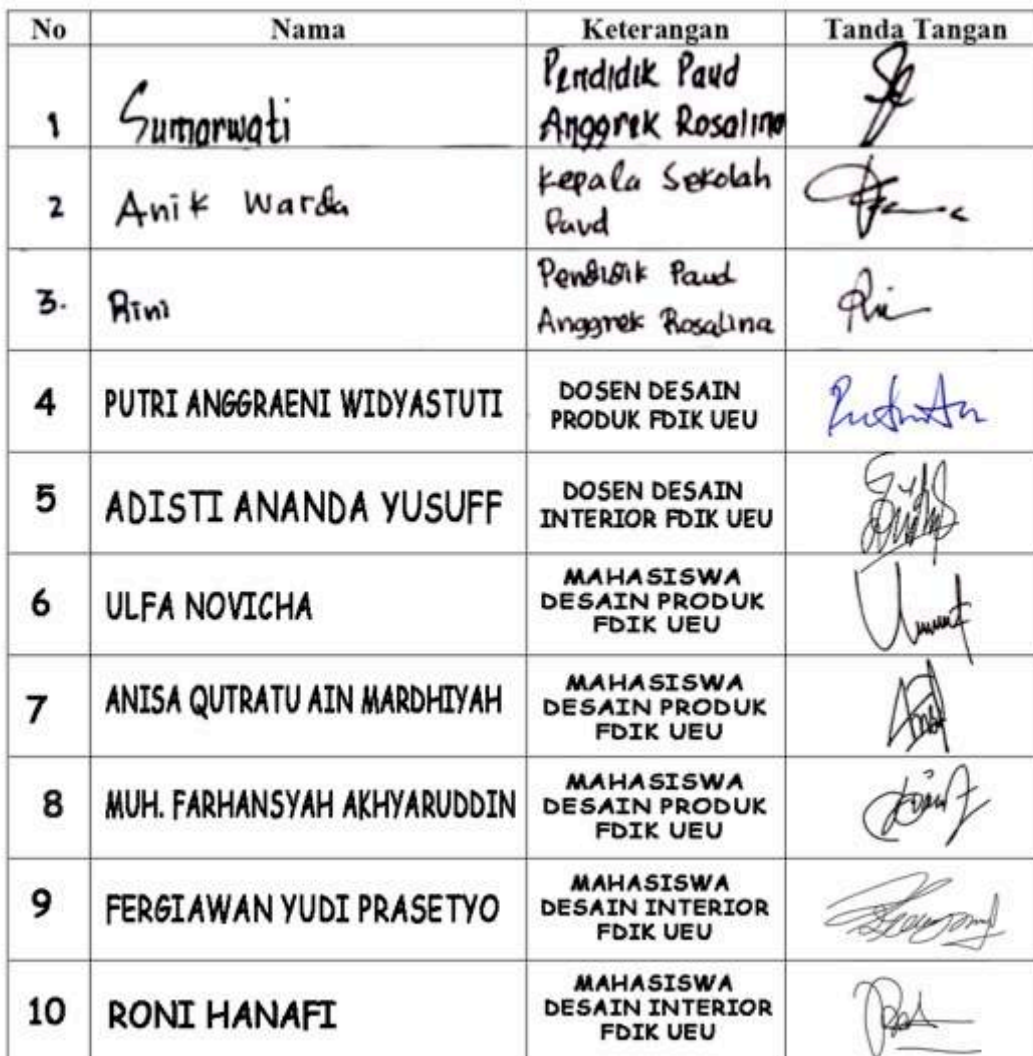 No Nama Keterangan Tanda Tangan
1 Sumarwati Pendidik Paud
Anggrek Rosalina
2 Anik Warda Kepala Sekolah
Paud
3. Rini Pendidik Paud
Anggrek Rosalina
4 PUTRI ANGGRAENI WIDYASTUTI DOSEN DESAIN
PRODUK FDIK UEU
5 ADISTI ANANDA YUSUFF DOSEN DESAIN
INTERIOR FDIK UEU
6 ULFA NOVICHA MAHASISWA
DESAIN PRODUK
FDIK UEU
7 ANISA QUTRATU AIN MARDHIYAH MAHASISWA
DESAIN PRODUK
FDIK UEU
8 MUH. FARHANSYAH AKHYARUDDIN MAHASISWA
DESAIN PRODUK
FDIK UEU
9 FERGIAWAN YUDI PRASETYO MAHASISWA
DESAIN INTERIOR
FDIK UEU
10 RONI HANAFI MAHASISWA
DESAIN INTERIOR
FDIK UEU